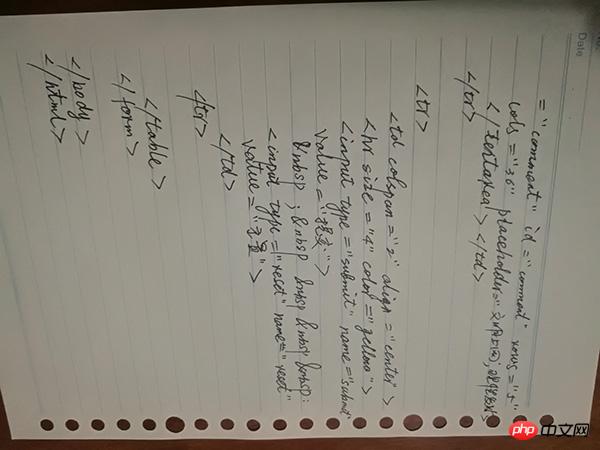 Date
="comment" id="comment" rows="5"
cols="36" placeholder="
</textarea></td>
</tr>
<tr>
<td colspan="2" align="center">
<hr size="4" color="yellow">
<input type="submit" name="submit"
value="提交">
&nbsp;&nbsp &nbsp &nbsp &nbsp;
<input type="reset" name="reset"
value="重置">
</td>
</tr>
</table>
</form>
</body>
</html>
php 中文网